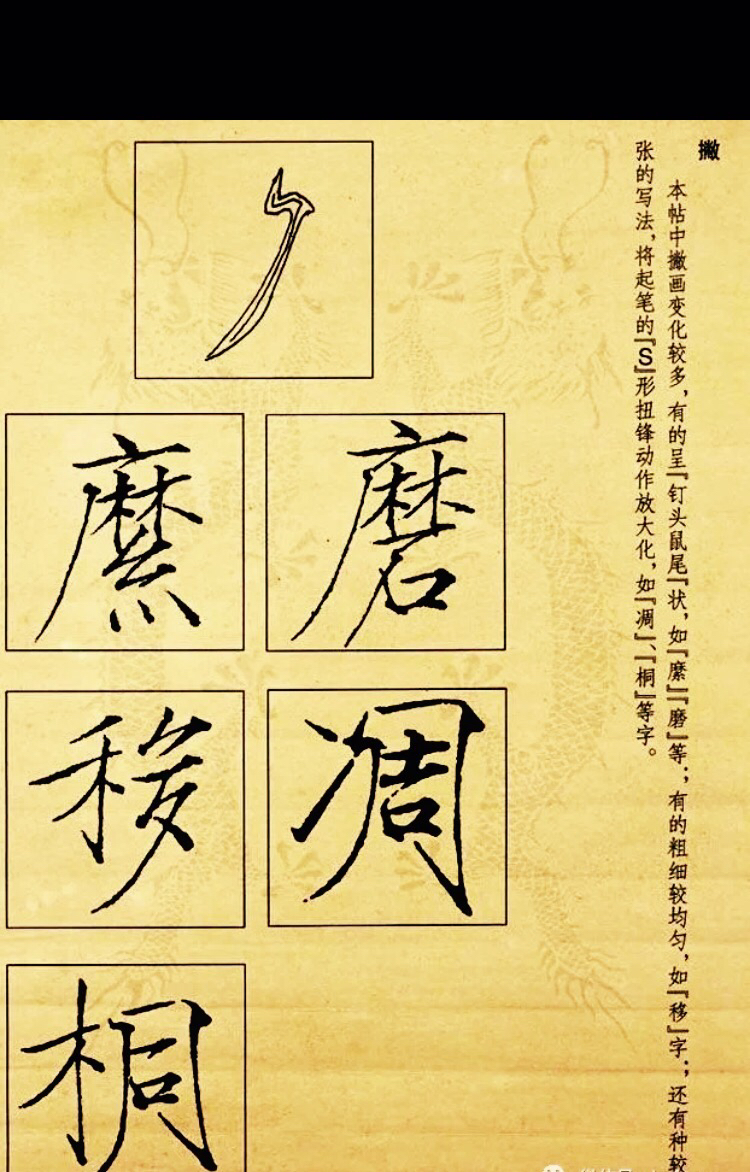 撇
本帖中撇画变化较多，有的呈『钉头鼠尾』状，如『縻』『磨』等；有的粗细较均匀，如『移』字；还有种较
张的写法，将起笔的『S』形扭锋动作放大化，如『凋』、『桐』等字。
磨
縻
凋
移
桐